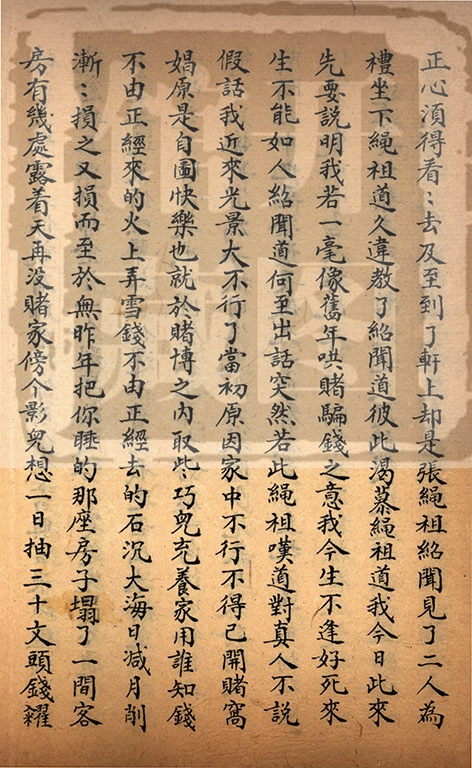 正心須得看〻去及至到了軒上却是張繩祖紹聞見了二人為
禮坐下繩祖道久違教了紹聞道彼此渴慕繩祖道我今日此來
先要說明我若一毫像舊年哄賭騙錢之意我今生不逢好死來
生不能如人紹聞道何至出話突然若此繩祖嘆道對真人不說
假話我近來光景大不行了當初原因家中不行不得已開賭窩
娼原是自圖快樂也就於賭博之內取些巧兒充養家用誰知錢
不由正經來的火上弄雪錢不由正經去的石沉大海日減月削
漸〻損之又損而至於無昨年把你睡的那座房子塌了一間客
房有幾處露着天再沒賭家傍个影兒想一日抽三十文頭錢糴